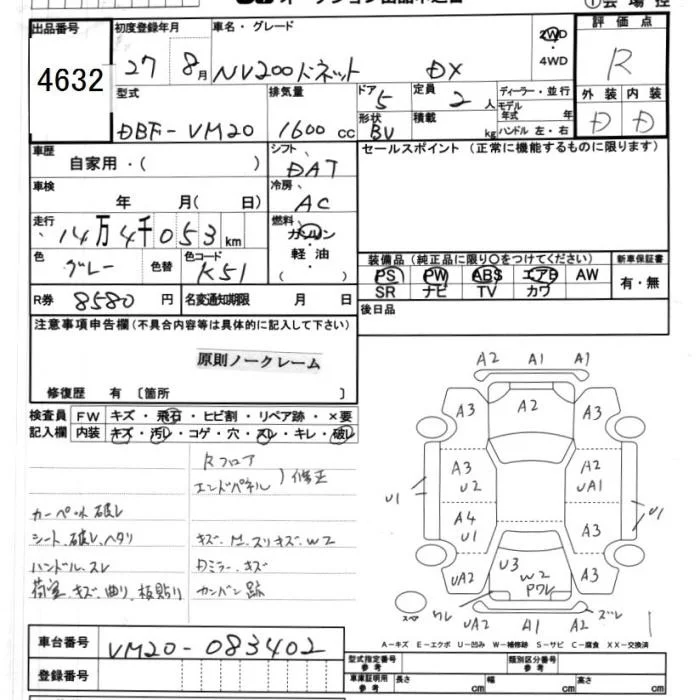 出品番号
4632
初度登録年月
27 8月
車名・グレード
NV200バネット DX
2WD
・
4WD
評価点
R
型式
DBF-VM20
排気量
1600 cc
ドア
5
定員
2 人
ディーラー・並行
モデル
年式 年
ハンドル 左・右
形状
BV
積載
kg
外装 内装
D D
車歴
自家用・( )
シフト
DAT
セールスポイント(正常に機能するものに限ります)
車検
年 月( 日)
冷房
AC
走行
14万4千053km
燃料
ガソリン
・
軽油
色
グレー
色替
色コード
K51
装備品(純正品に限り○をつけてください)
PS PW ABS エアB AW
SR ナビ TV カワ
新車保証書
有・無
R券 8580円
名変通知期限 月 日
後日品
注意事項申告欄(不具合内容等は具体的に記入して下さい)
原則ノークレーム
修復歴 有〔箇所 〕
検査員
記入欄
FW キズ・飛石・ヒビ割・リペア跡・×要
内装 キズ・汚レ・コゲ・穴・スレ・キレ・破レ
Rフロア
エンドパネル
)修正
カーペット破レ
シート.破レ.ヘタリ
キズ.M.スリキズ.W2
ハンドル.スレ
Dミラー.キズ
荷室.キズ.曲リ.板貼リ
カンバン跡
A2 A1 A1
A3 A2 A3
A3 A2
U2 UA1
U1 U1
A4 A3
U1
UA2 U3 W2 A3
Pワレ
スペア
ワレ UA2 A1 A2 ズレ
A-キズ E-エクボ U-凹み W-補修跡 S-サビ C-腐食 XX-交換済
車台番号
VM20-083402
登録番号
型式指定番号
参考
類別区分番号
参考
車庫証明用
参考
長さ cm 幅 cm 高さ cm